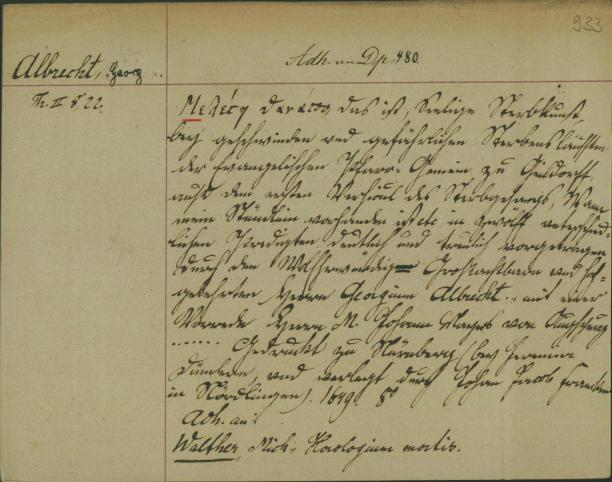 933
Albrecht, Georg
Adh. an Dp. 480.
Th. II 8 22.
Μελέτη θανάτου das ist, Seelige Sterbkunst
bey geschwinden und gefährlichen Sterbensläufften
der Evangelischen Pfarr-Gemein zu
auß dem ersten Versicul des Sterbgesangs, Wann
mein Stündlein vorhanden ist etc in zwölff unterschied-
lichen Predigten deutlich und treulich vorgetragen
durch den Wohlehrwürdig Großachtbaren und hoch-
gelehrten Herrn Georgium Albrecht .. mit einer
Vorrede Herrn M. Johann von Augspurg
...... Gedruckt zu Nürnberg (bey Jeremia
Dümlern, und verlegt durch Johan Jacob
in Nördlingen). 1649. 8°
Adh. an:
Walther, Mich., Horologium mortis.